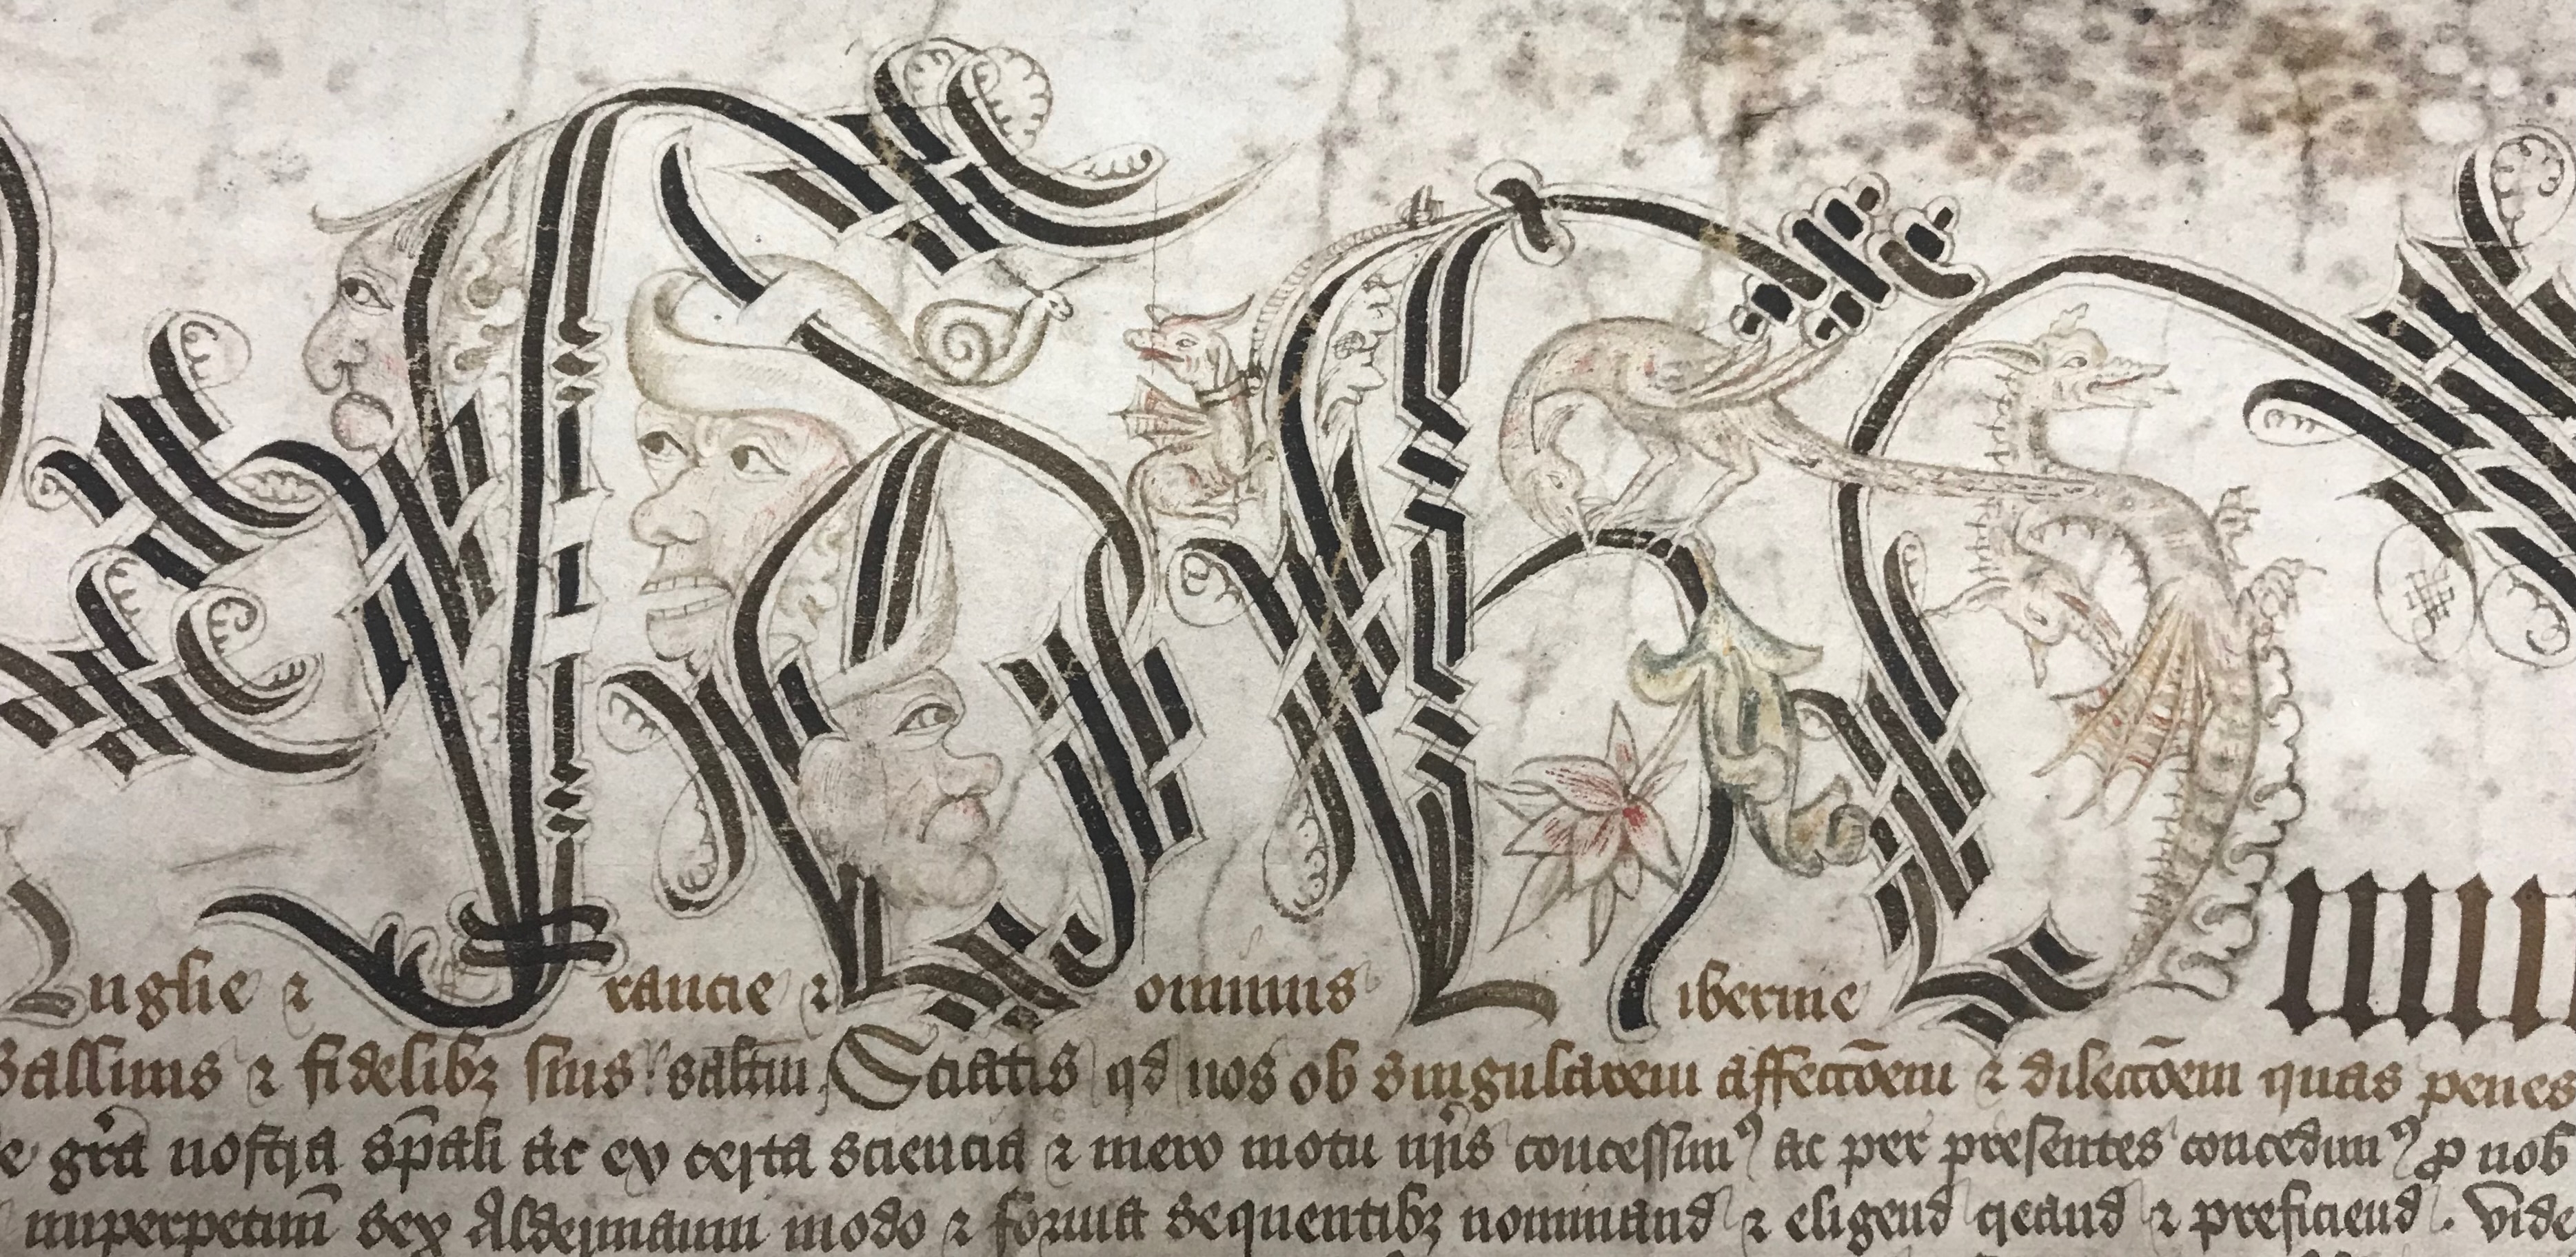 Anglie ⁊ Francie ⁊ Dominus Hibernie
Ballivis ⁊ fidelibȝ suis salt̄m Sciatis qd nos ob singularem affecc̄oem ⁊ dilecc̄oem quas penes
gr̄a nostra sp̄ali ac ex certa sciencia ⁊ mero motu nr̄is concessimꝰ ac per presentes concedimꝰ ꝓ nob
imperpetuū sex Aldermanni modo ⁊ forma sequentibȝ nominand ⁊ eligend creand ⁊ preficiend. vide